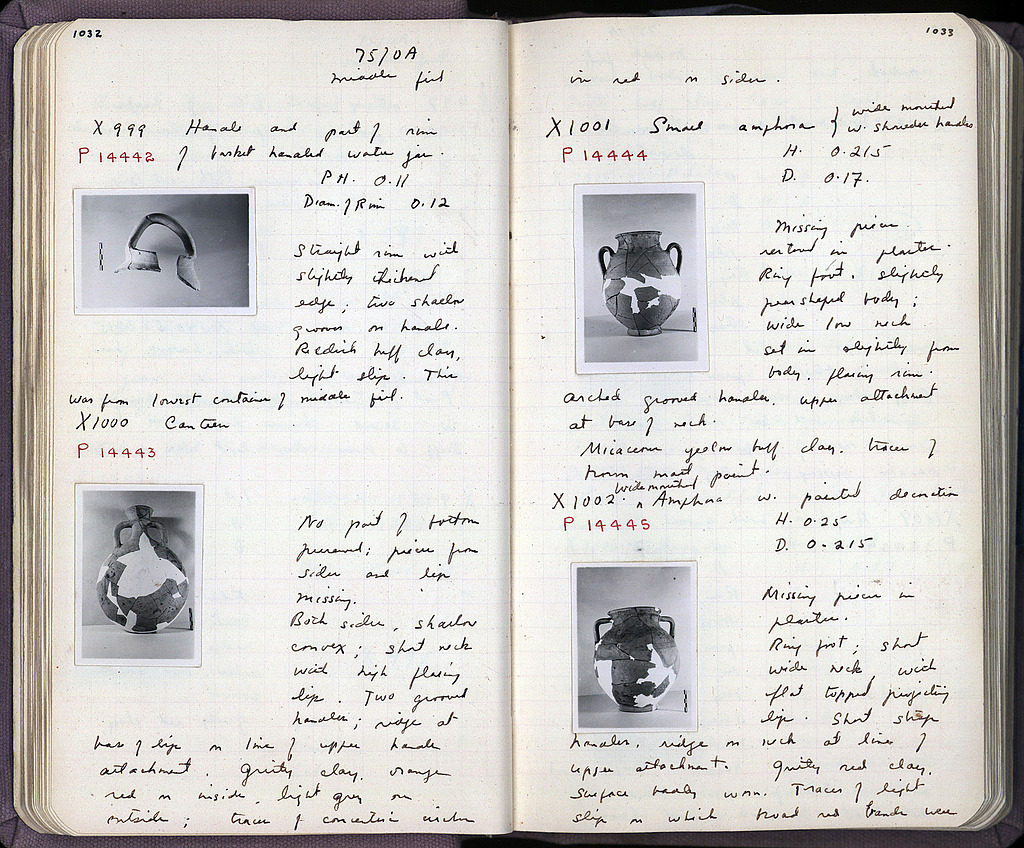 1032
75/0A
middle fill
X 999 Handle and part of rim
P 14442 of basket handled water jar.
P.H. 0.11
Diam. of Rim 0.12
Straight rim with
slightly thickened
edge; two shallow
grooves on handle.
Reddish buff clay,
light slip. This
was from lowest container of middle fill.
X1000 Canteen
P 14443
No part of bottom
preserved; pieces from
sides and lip
missing.
Both sides, shallow
convex; short neck
with high flaring
lip. Two grooved
handles; ridge at
base of lip on line of upper handle
attachment. Gritty clay, orange
red on inside, light grey on
outside; traces of concentric circles
1033
in red on sides.
X1001 Small amphora { wide mouthed
w. shoulder handles
P 14444
H. 0.215
D. 0.17.
Missing pieces
restored in plaster.
Ring foot, slightly
pear shaped body;
wide low neck
set in slightly from
body, flaring rim.
Arched grooved handles, upper attachment
at base of neck.
Micaceous yellow buff clay, traces of
brown matt paint.
wide mouthed
X1002. Amphora w. painted decoration
P 14445
H. 0.25
D. 0.215
Missing pieces in
plaster.
Ring foot; short
wide neck with
flat topped projecting
lip. Short strap
handles, ridge on neck at line of
upper attachment. Gritty red clay,
surface badly worn. Traces of light
slip on which broad red bands were